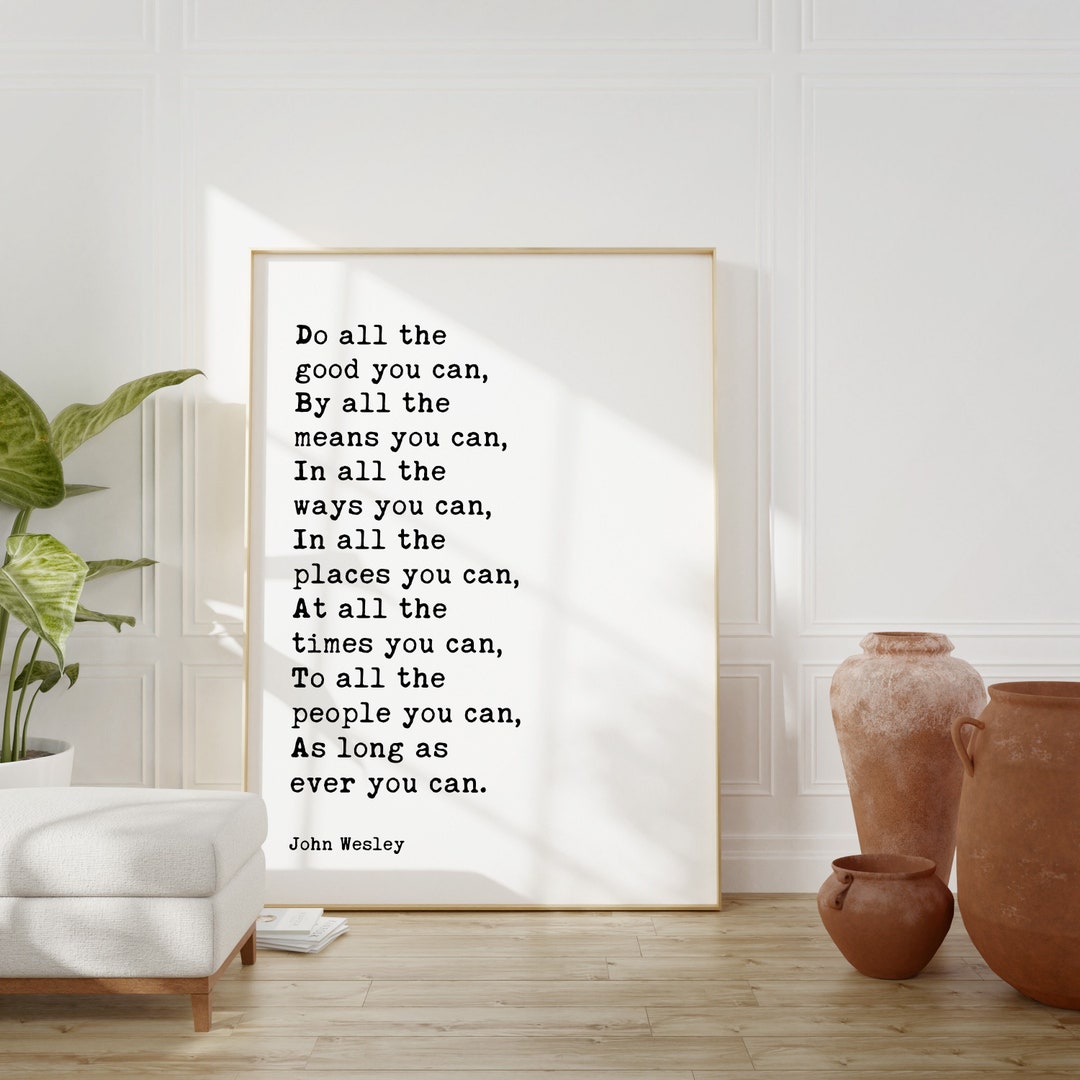 Do all the
good you can,
By all the
means you can,
In all the
ways you can,
In all the
places you can,
At all the
times you can,
To all the
people you can,
As long as
ever you can.
John Wesley